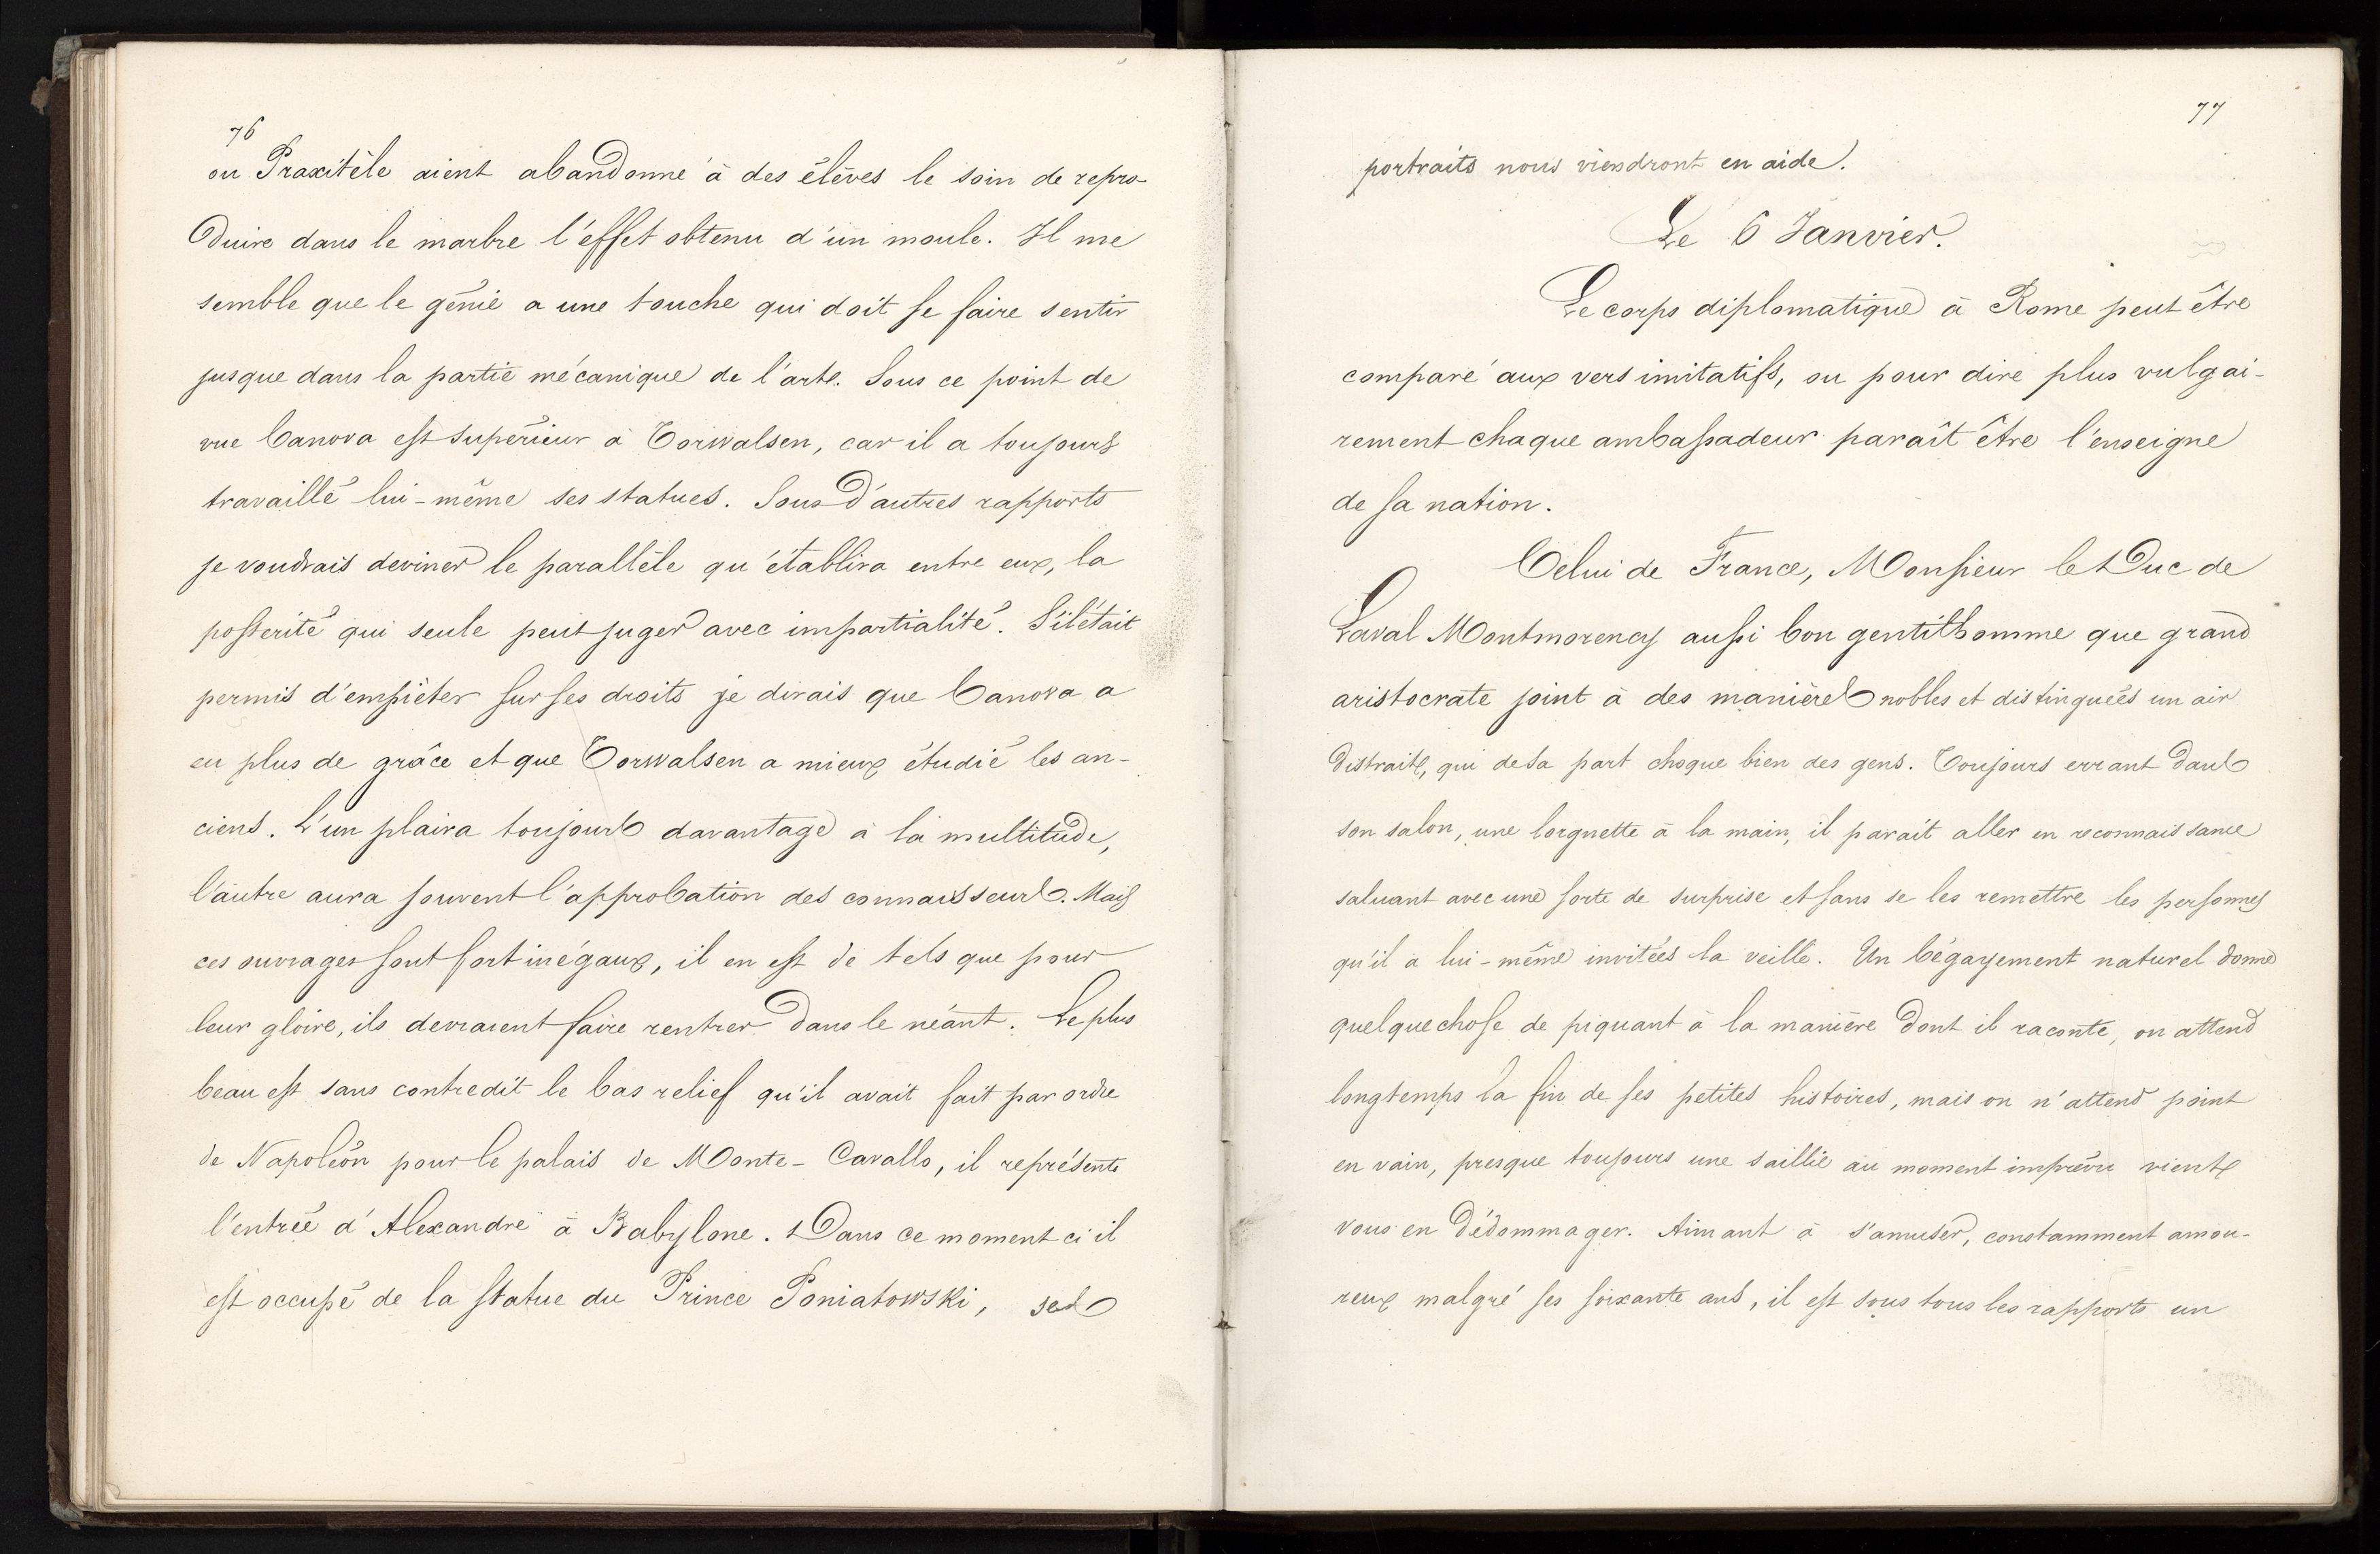 76
ou Praxitèle aient abandonné à des élèves le soin de repro-
duire dans le marbre l'effet obtenu d'un moule. Il me
semble que le génie a une touche qui doit se faire sentir
jusque dans la partie mécanique de l'art. Sous ce point de
vue Canova est supérieur à Torwalsen, car il a toujours
travaillé lui-même ses statues. Sous d'autres rapports
je voudrais deviner le parallèle qu'établira entre eux, la
postérité qui seule peut juger avec impartialité. S'il était
permis d'empiéter sur ses droits je dirais que Canova a
eu plus de grâce et que Torwalsen a mieux étudié les an-
ciens. L'un plaira toujours davantage à la multitude,
l'autre aura souvent l'approbation des connaisseurs. Mais
ces ouvrages sont fort inégaux, il en est de tels que pour
leur gloire, ils devraient faire rentrer dans le néant. Le plus
beau est sans contredit le bas relief qu'il avait fait par ordre
de Napoléon pour le palais de Monte-Cavallo, il représente
l'entrée d'Alexandre à Babylone. Dans ce moment ci il
est occupé de la statue du Prince Poniatowski, ses
77
portraits nous viendront en aide.
Le 6 Janvier.
Le corps diplomatique à Rome peut être
comparé aux vers imitatifs, ou pour dire plus vulgai-
rement chaque ambassadeur paraît être l'enseigne
de sa nation.
Celui de France, Monsieur le Duc de
Laval Montmorency aussi bon gentilhomme que grand
aristocrate joint à des manières nobles et distinguées un air
distrait, qui de sa part choque bien des gens. Toujours errant dans
son salon, une lorgnette à la main, il parait aller en reconnaissance
saluant avec une sorte de surprise et sans se les remettre les personnes
qu'il a lui-même invitées la veille. Un bégayement naturel donne
quelque chose de piquant à la manière dont il raconte, on attend
longtemps la fin de ses petites histoires, mais on n'attend point
en vain, presque toujours une saillie au moment imprévu vient
vous en dédommager. Aimant à s'amuser, constamment amou-
reux malgré ses soixante ans, il est sous tous les rapports un